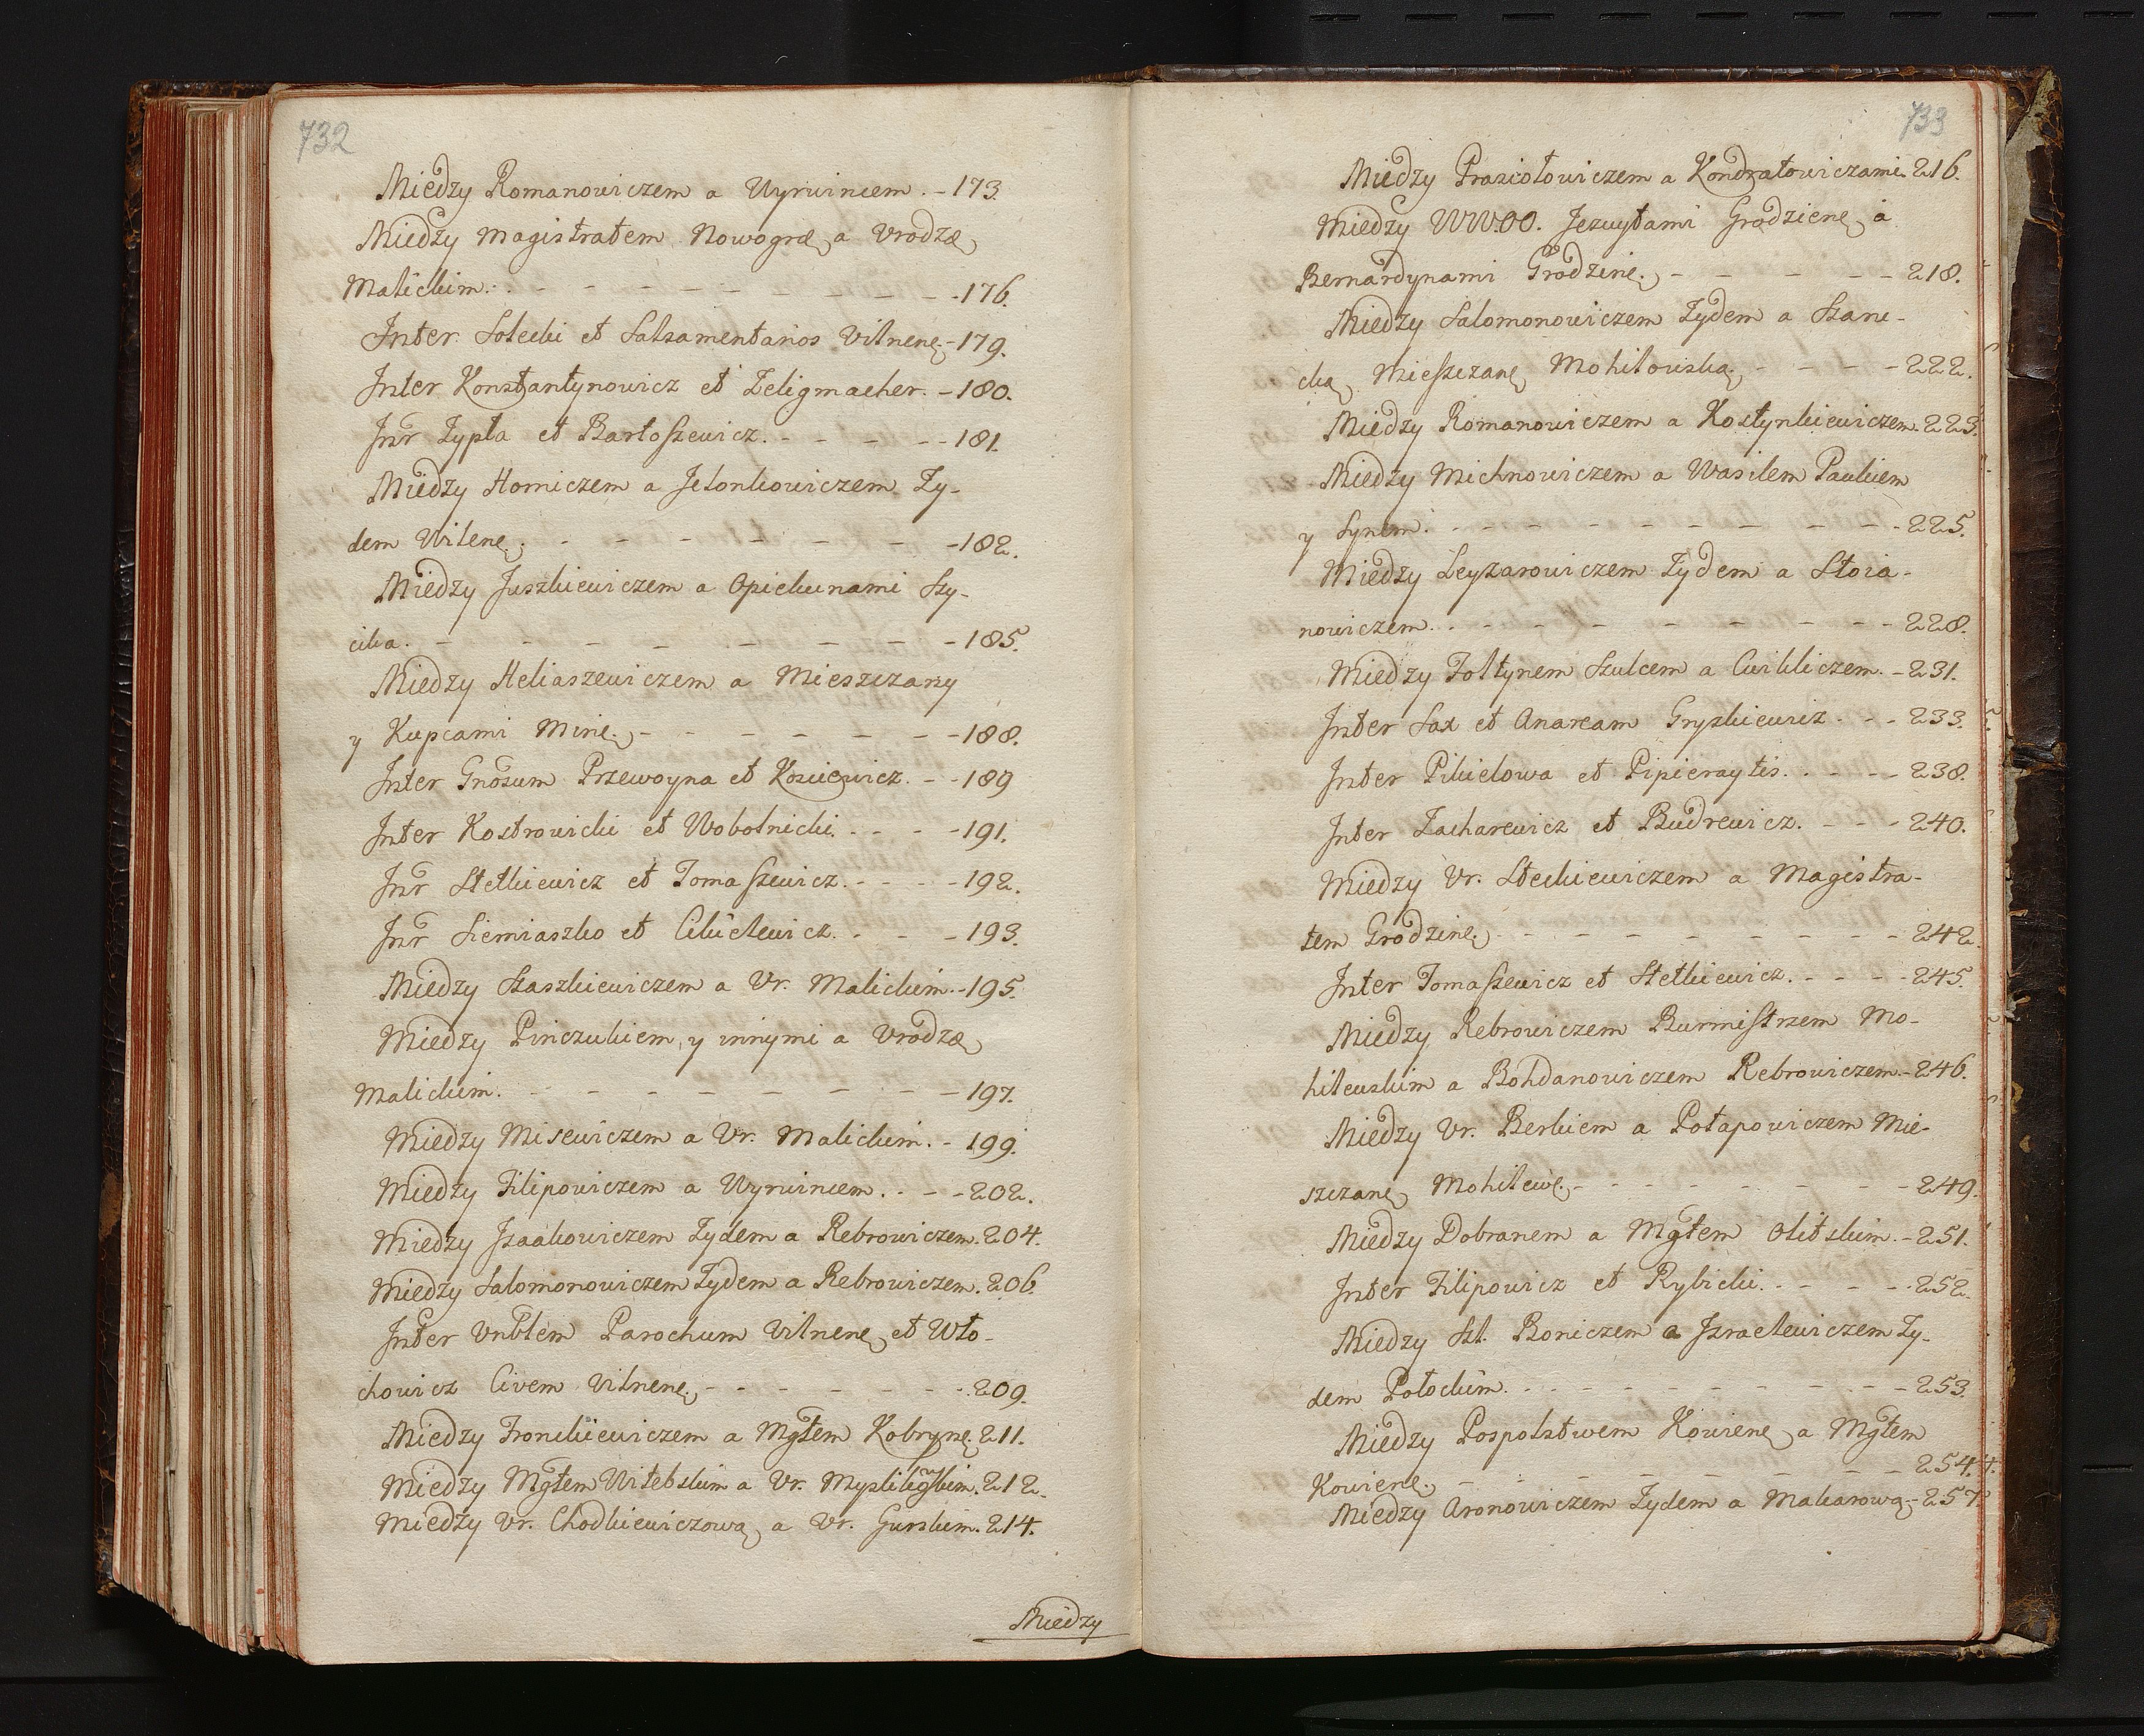 732
Miedzy Romanowiczem a Wyrwincem. - 173.
Miedzy Magistratem Nowogrę a Vrodzę
Malickim. - - - - - - - - - - 176.
Inter Solecki et Salsamentarios Vilnenę. - 179.
Inter Konstantynowicz et Zeligmacher. - 180.
Inr Zypla et Bartoszewicz. - - - - - 181.
Miedzy Homiczem a Jelonkowiczem Zy-
dem Wilenę. - - - - - - - 182.
Miedzy Juszkiewiczem a Opiekunami Szy-
cika. - - - - - - - - - 185.
Miedzy Heliaszewiczem a Mieszczany
y Kupcami Minę. - - - - - - - 188.
Inter Gnosum Przewoyna et Kosciewicz. - - 189
Inter Kostrowicki et Wobolnicki. - - - - 191.
Inr Stetkiewicz et Tomaszewicz. - - - - 192.
Inr Siemiaszko et Cikielewicz. - - - 193.
Miedzy Staszkiewiczem a Vr. Malickim. - 195.
Miedzy Pinczukiem, y innymi a Vrodzę
Malickim. - - - - - - - - 197.
Miedzy Misewiczem a Vr. Malickim. - 199.
Miedzy Filipowiczem a Wyrwincem. - - - 202.
Miedzy Izaakowiczem Zydem a Rebrowiczem. 204.
Miedzy Salomonowiczem Zydem a Rebrowiczem. 206.
Inter Vnblem Parochum Vilnenę et Wło-
chowicz Civem Vilnenę. - - - - - - - 209.
Miedzy Fronckiewiczem a Mgtem Kobrynę. 211.
Miedzy Mgtem Witebskim a Vr. 212.
Miedzy Vr. Chodkiewiczową a Vr. Gurskim. 214.
Miedzy
733
Miedzy Prasciołowiczem a Kondratowiczami. 216.
Miedzy WW.OO. Jezuytami Grodzienę a
Bernardynami Grodzinę. - - - - - 218.
Miedzy Salomonowiczem Zydem a Stanc-
cką Mieszczanę Mohilowską. - - - - 222.
Miedzy Romanowiczem a Kostynkiewiczem. 223.
Miedzy Michnowiczem a Wasilem Paukiem
y Synem. - - - - - - - - - - 225.
Miedzy Leyzarowiczem Zydem a Stoia-
nowiczem. - - - - - - - - - 228.
Miedzy Foltynem Szulcem a Cwikliczem. - 231.
Inter Sax et Anaream Gryszkiewicz. - - 233.
Inter Pikielowa et Pipieraytis. - - - - 238.
Inter Zacharewicz et Budrewicz. - - - 240.
Miedzy Vr. Steckiewiczem a Magistra-
tem Grodzinę. - - - - - - - - 242.
Inter Tomaszewicz et Stetkiewicz. - - - - 245.
Miedzy Rebrowiczem Burmistrzem Mo-
hilewskim a Bohdanowiczem Rebrowiczem. - 246.
Miedzy Vr. Berkiem a Potapowiczem Mie-
szczanę Mohilewę. - - - - - - - - 249.
Miedzy Dobranem a Mgtem Olitskim. - 251.
Inter Filipowicz et Rybicki. - - - - - 252.
Miedzy Szl. Boniczem a Izraelewiczem Zy-
dem Połockim. - - - - - - - - - 253.
Miedzy Pospolstwem Kowienę a Mgtem
Kowienę. - - - - - - - - 254.
Miedzy Aronowiczem Zydem a Makarową. - 257.